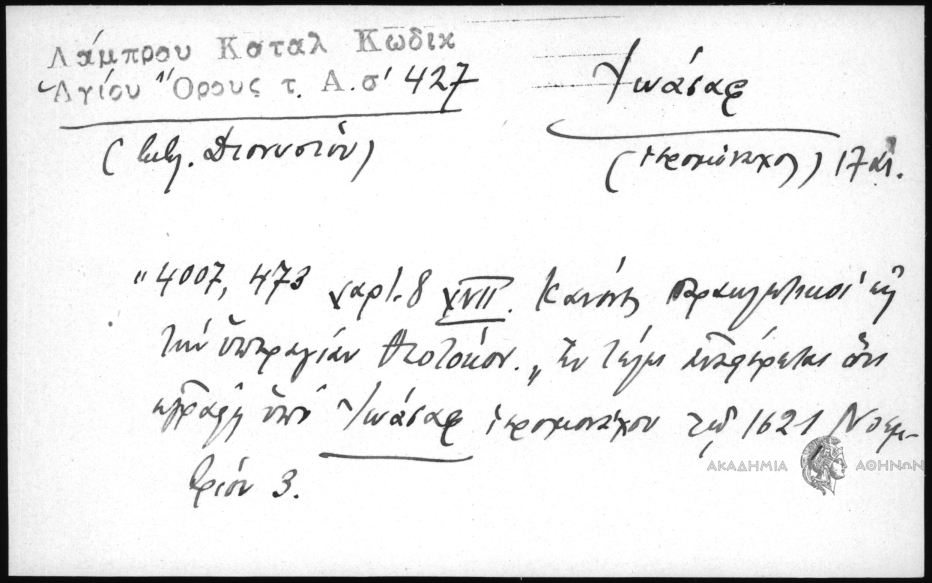 Λάμπρου Καταλ Κωδικ
Ἁγίου Ὄρους τ. Α. σ' 427
Ἰωάσαφ
(Διονυσίου)
(ἱερομόναχος) 17 αἰ.
"4007, 473 χαρτ. 8 XVII. Κανόνες παρακλητικοί εἰς
τὴν ὑπεραγίαν Θεοτόκον. "Ἐν τέλει ἀναφέρεται ὅτι
ἐγράφη ὑπό Ἰωάσαφ ἱερομονάχου τῷ 1621 Νοεμ-
βρίου 3.
ΑΚΑΔΗΜΙΑ ΑΘΗΝΩΝ